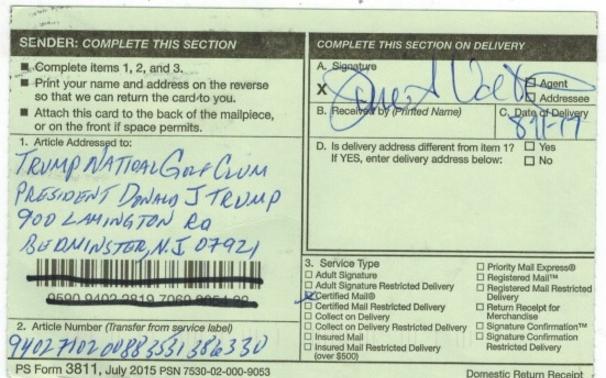 SENDER: COMPLETE THIS SECTION
■ Complete items 1, 2, and 3.
■ Print your name and address on the reverse
so that we can return the card to you.
■ Attach this card to the back of the mailpiece,
or on the front if space permits.
1. Article Addressed to:
TRUMP NATIONAL GOLF CLUM
PRESIDENT DONALD J TRUMP
900 LAMINGTON RD
BEDMINSTER, N.J 07921
2. Article Number (Transfer from service label)
PS Form 3811, July 2015 PSN 7530-02-000-9053
COMPLETE THIS SECTION ON DELIVERY
A. Signature
X
☐ Agent
☐ Addressee
B. Received by (Printed Name)
C. Date of Delivery
D. Is delivery address different from item 1? ☐ Yes
If YES, enter delivery address below: ☐ No
3. Service Type
☐ Adult Signature
☐ Adult Signature Restricted Delivery
☑ Certified Mail®
☐ Certified Mail Restricted Delivery
☐ Collect on Delivery
☐ Collect on Delivery Restricted Delivery
☐ Insured Mail
☐ Insured Mail Restricted Delivery
(over $500)
☐ Priority Mail Express®
☐ Registered Mail™
☐ Registered Mail Restricted
Delivery
☐ Return Receipt for
Merchandise
☐ Signature Confirmation™
☐ Signature Confirmation
Restricted Delivery
Domestic Return Receipt